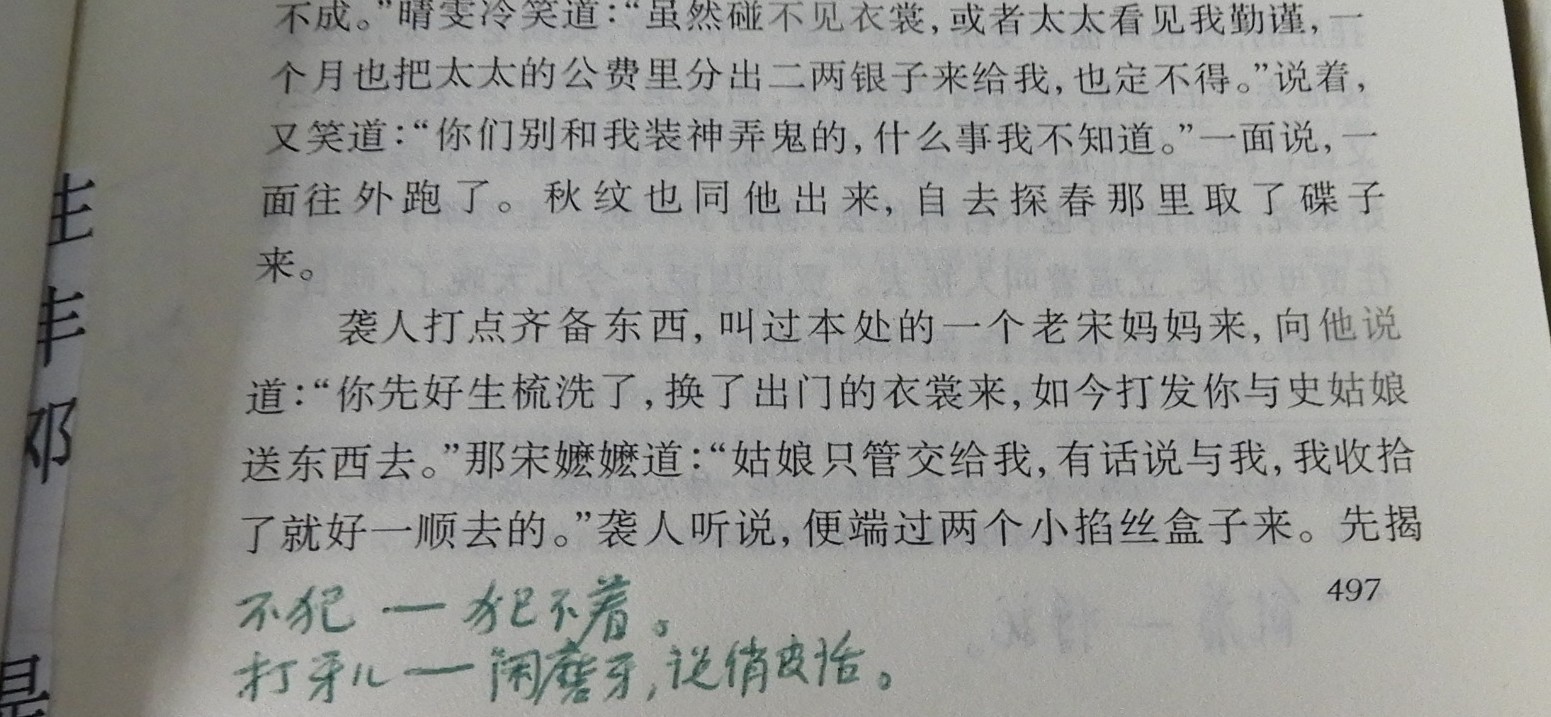 不成。”晴雯冷笑道：“虽然碰不见衣裳，或者太太看见我勤谨，一
个月也把太太的公费里分出二两银子来给我，也定不得。”说着，
又笑道：“你们别和我装神弄鬼的，什么事我不知道。”一面说，一
面往外跑了。秋纹也同他出来，自去探春那里取了碟子
来。
袭人打点齐备东西，叫过本处的一个老宋妈妈来，向他说
道：“你先好生梳洗了，换了出门的衣裳来，如今打发你与史姑娘
送东西去。”那宋嬷嬷道：“姑娘只管交给我，有话说与我，我收拾
了就好一顺去的。”袭人听说，便端过两个小掐丝盒子来。先揭
497
不犯 — 犯不着。
打牙儿 — 闲磨牙，说俏皮话。